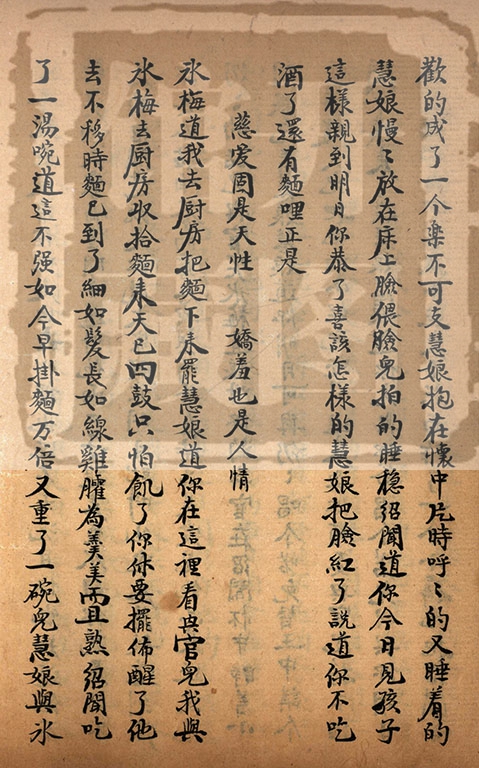 歡的成了一个楽不可支慧娘抱在懷中片時呼〻的又睡着的
慧娘慢〻放在床上臉偎臉兒拍的睡穩紹聞道你今日見孩子
這樣親到明日你恭了喜該怎樣的慧娘把臉紅了說道你不吃
酒了還有麵哩正是
慈爱固是天性 嬌羞也是人情
氷梅道我去厨房把麵下来罷慧娘道你在這裡看與官兒我與
氷梅去厨房收拾麵来天已四鼓只怕飢了你休要擺佈醒了他
去不移時麵已到了細如髮長如線雞臛為羹美而且熟紹聞吃
了一湯碗道這不强如今早掛麵万倍又重了一碗兒慧娘與氷